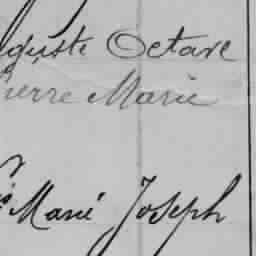 guste Octave
ierre Marie
Marié Joseph